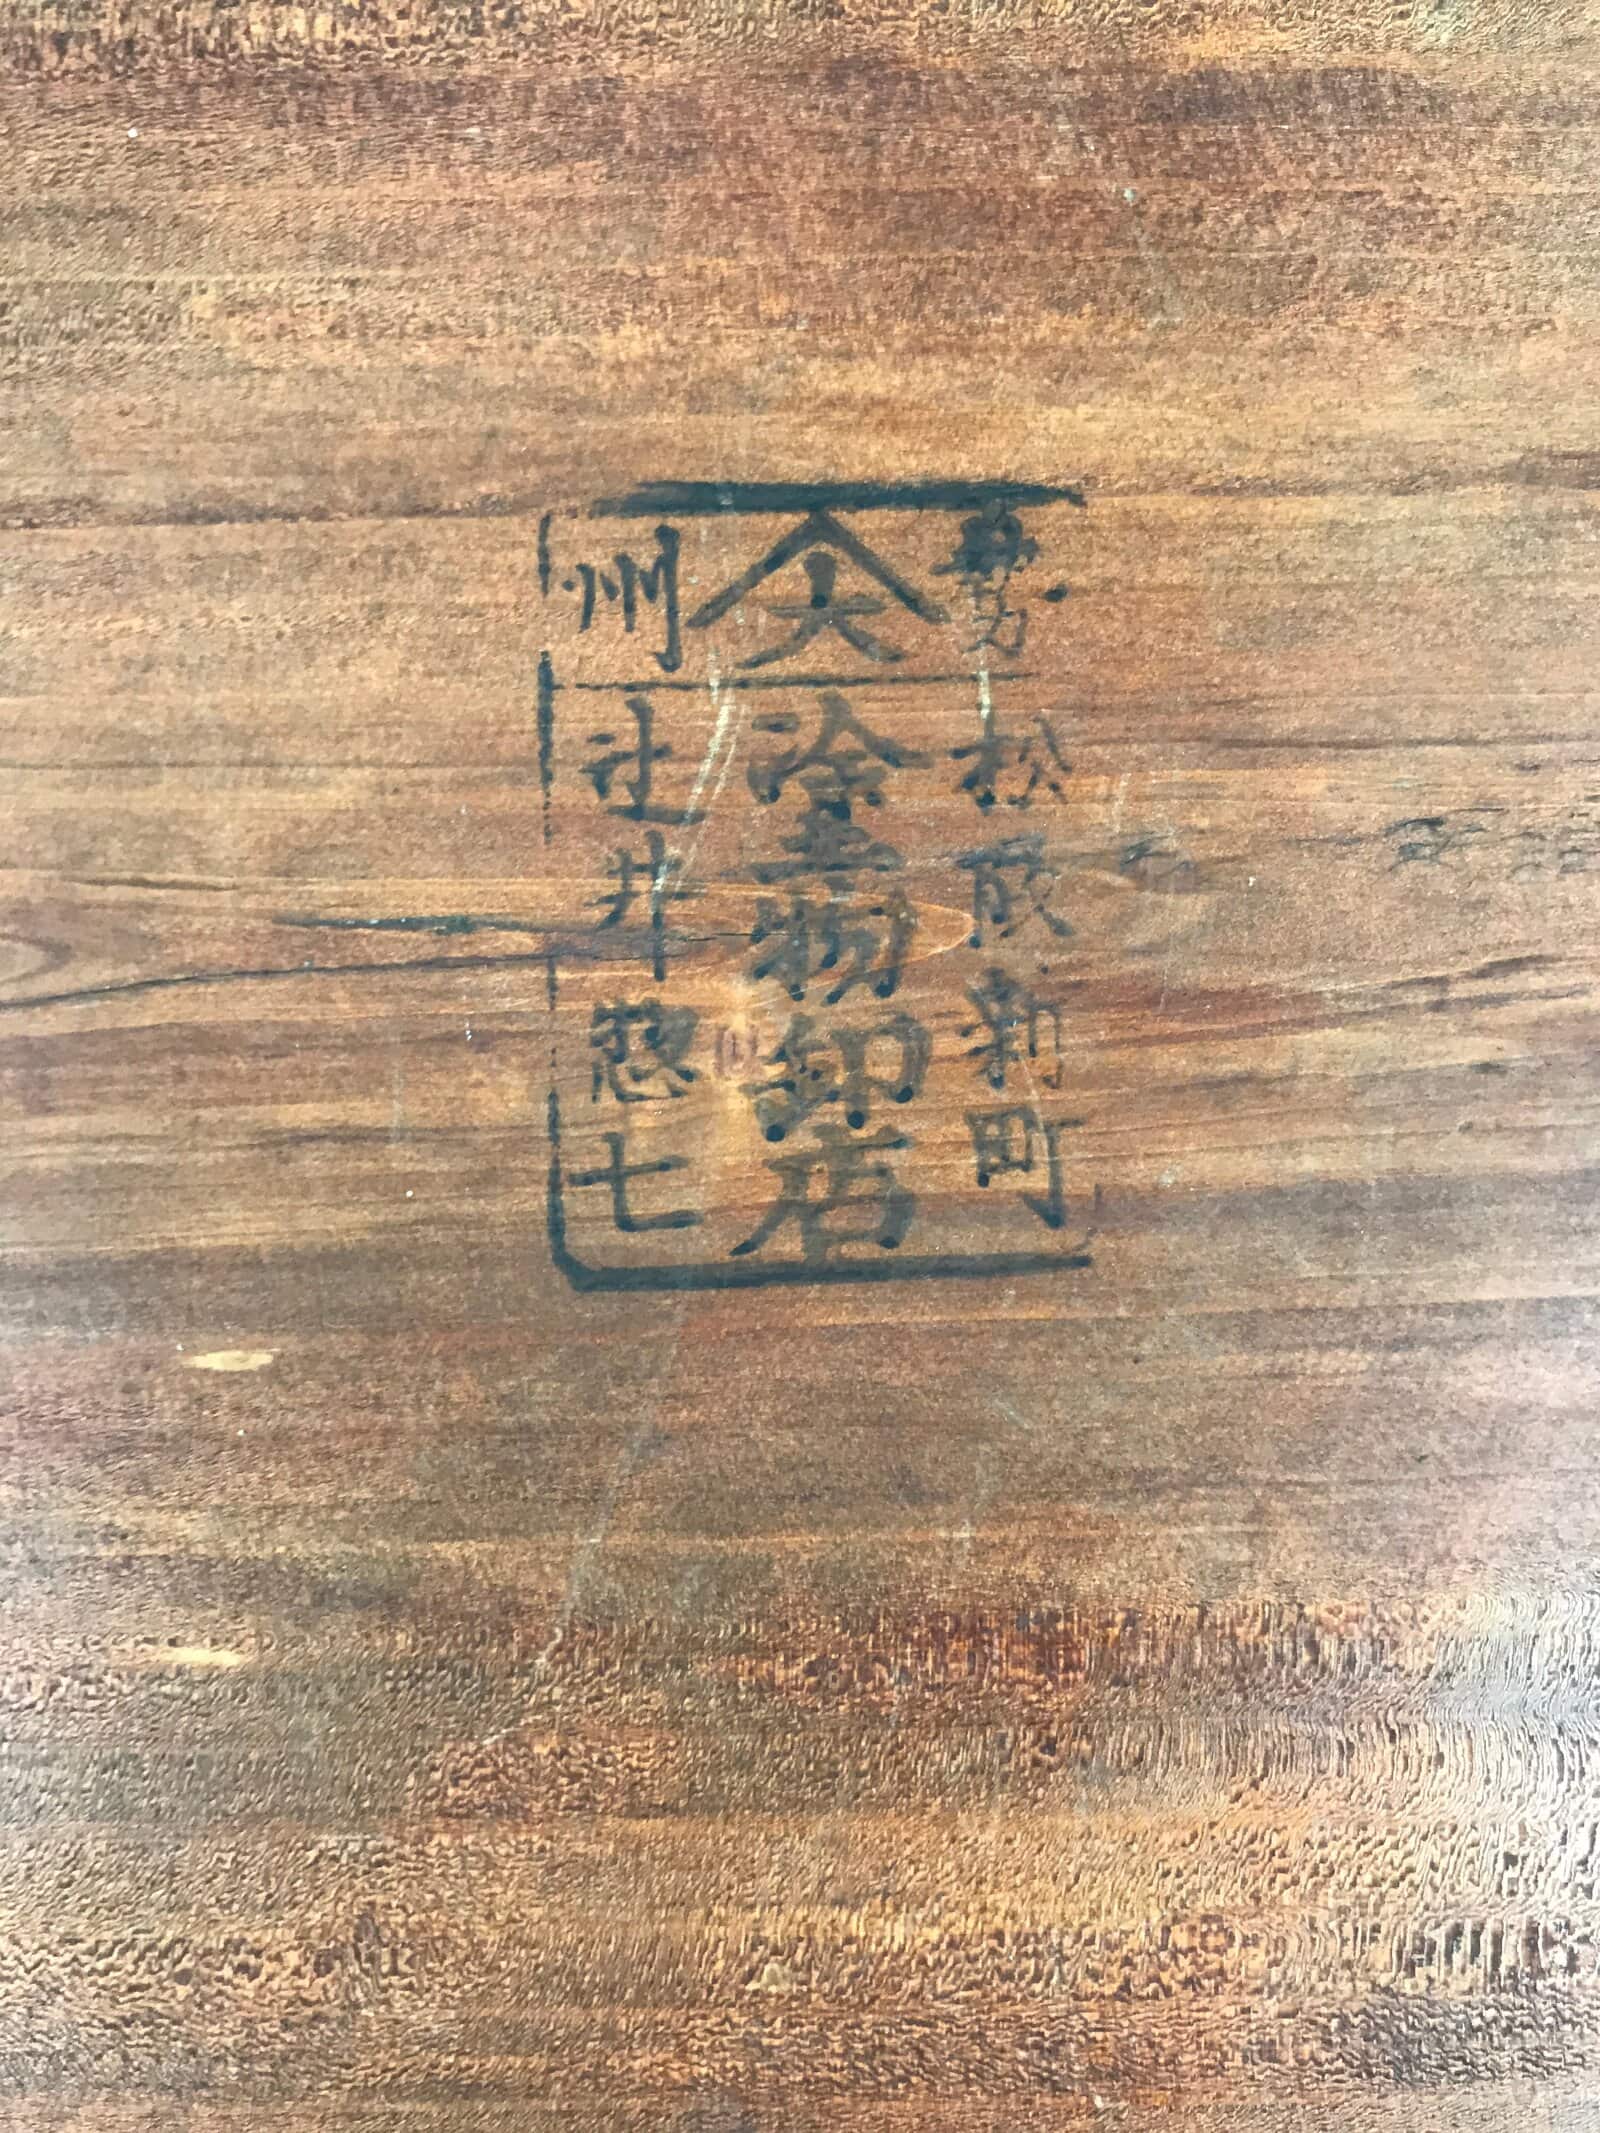 勢大州
松阪新町
塗物卸店
辻井惣七